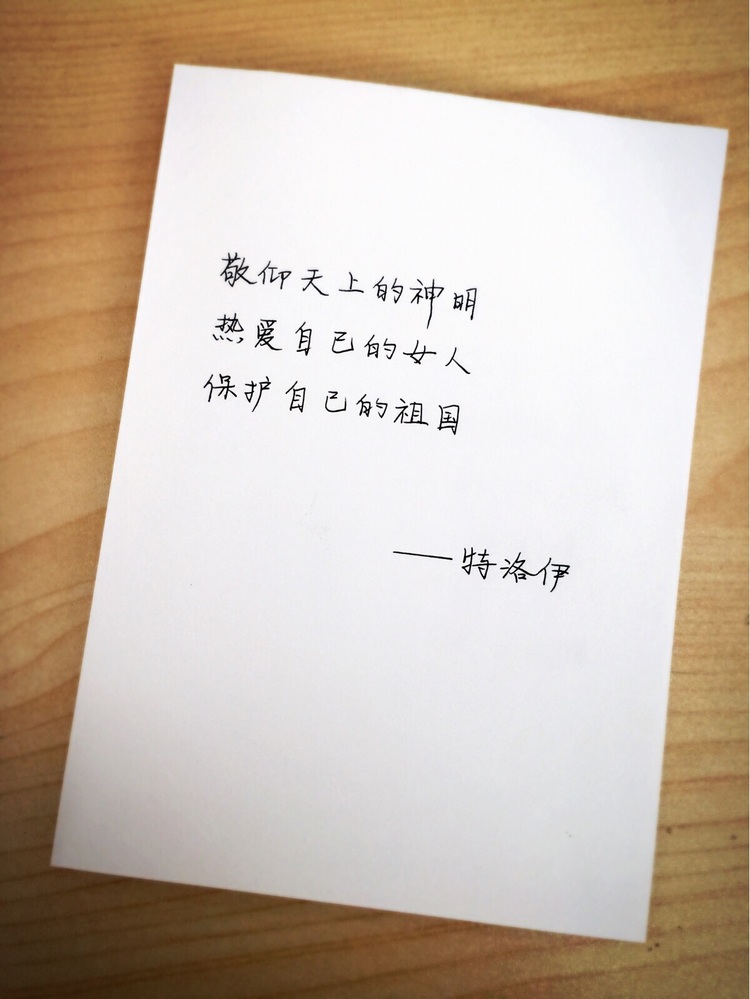 敬仰天上的神明
热爱自己的女人
保护自己的祖国
——特洛伊